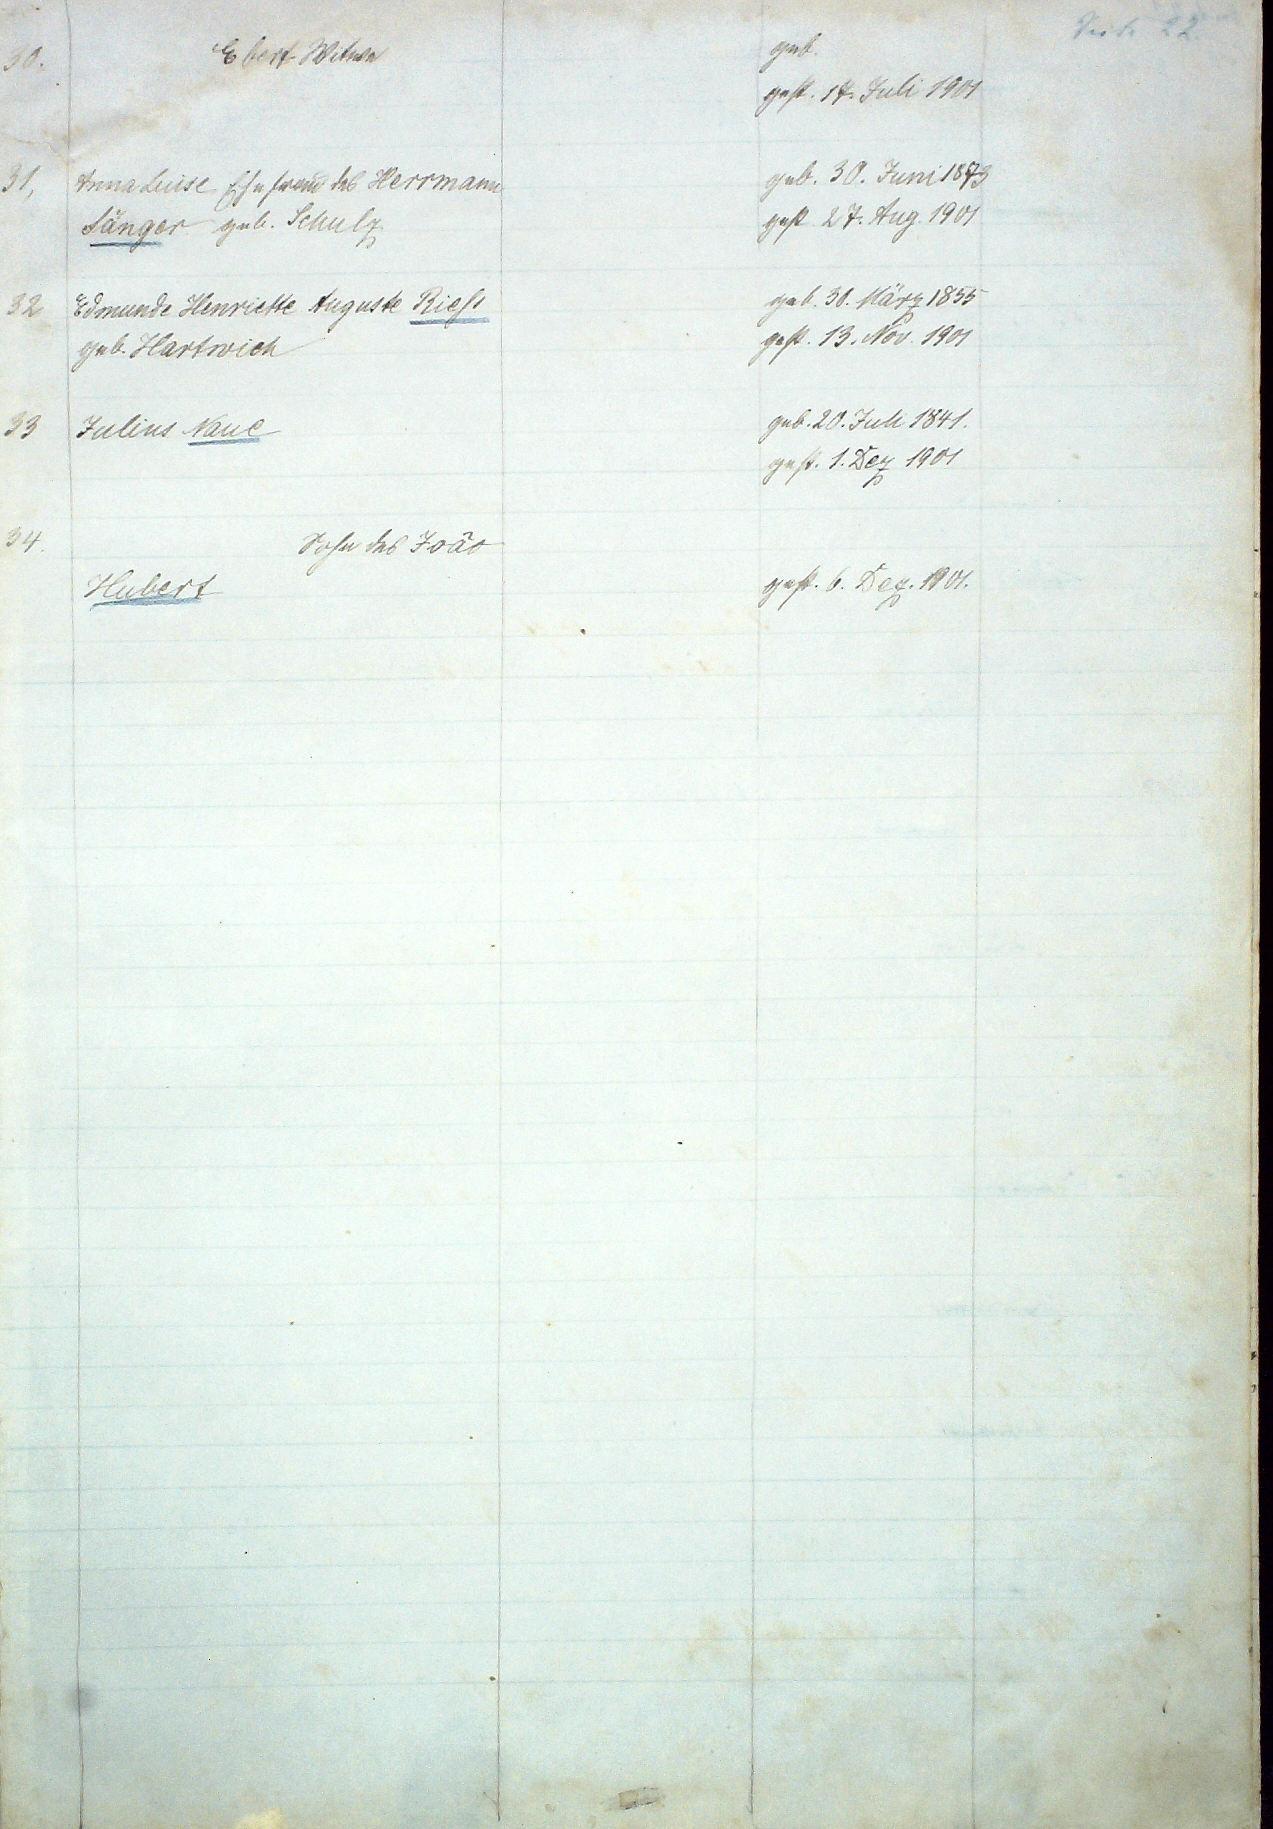 Seite 22.
30. Ebert Witwe geb.
gest. 17. Juli 1901
31, Anna Luise Ehefrau des Herrmann geb. 30. Juni 1873
Sänger geb. Schulz gest. 27. Aug. 1901
32 Edmunde Henriette Auguste Riess geb. 30. März 1855
geb. Hartwich gest. 13. Nov. 1901
33 Julius Naue geb. 20. Juli 1841.
gest. 1. Dez 1901
34. Sohn des João
Hubert gest. 6. Dez. 1901.